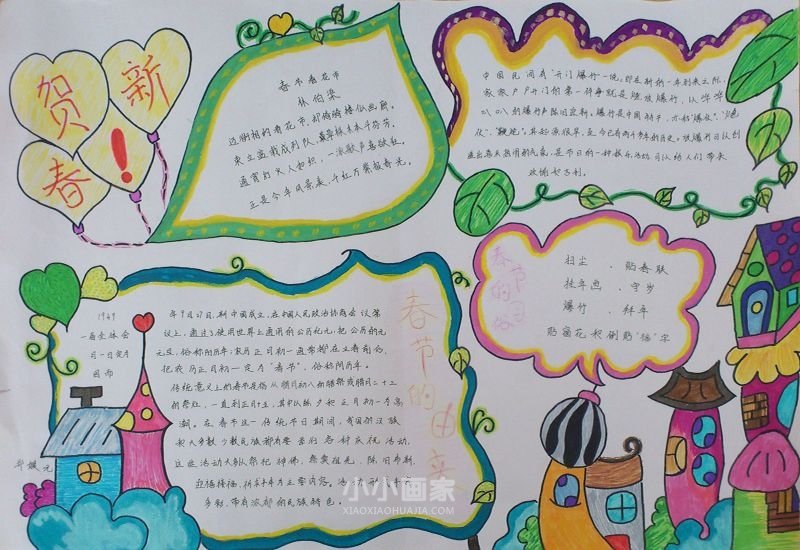 贺新
春!
春节看花市
林伯渠
迈街相约看花市,却倚骑楼似画廊。
束立盆栽成列队,草株木本斗芬芳。
通宵灯火人如织,一派歌声喜欲狂。
正是今年风景美,千红万紫报春光。
中国民间有"开门爆竹"一说。即在新的一年到来之际,
家家户户开门的第一件事就是燃放爆竹,以哔哔
叭叭的爆竹声除旧迎新。爆竹是中国特产,亦称"爆仗"、"炮
仗"、"鞭炮"。其起源很早,至今已有两千多年的历史。放爆竹可以创
造出喜庆热闹的气氛,是节日的一种娱乐活动,可以给人们带来
欢愉和吉利。
春节的习俗
扫尘、贴春联
挂年画、守岁
爆竹、拜年
贴窗花和倒贴"福"字
春节的由来
1949年9月27日,新中国成立,在中国人民政治协商会议第
一届全体会议上,通过了使用世界上通用的公历纪元,把公历的元
月一日定为元旦,俗称阳历年;农历正月初一通常都在立春前后,
因而把农历正月初一定为"春节",俗称阴历年。
传统意义上的春节是指从腊月初八的腊祭或腊月二十三
的祭灶,一直到正月十五,其中以除夕和正月初一为高
潮。在春节这一传统节日期间,我国的汉族
和大多数少数民族都有要举行各种庆祝活动,
这些活动大多以祭祀神佛、祭奠祖先、除旧布新、
迎禧接福、祈求丰年为主要内容。活动形式丰富
多彩,带有浓郁的民族特色。
小小画家
XIAOXIAOHUAJIA.COM